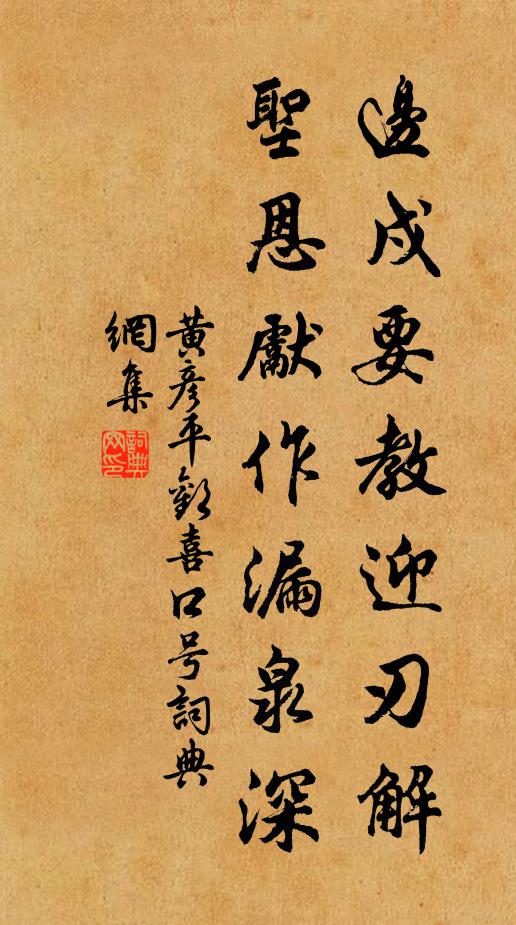 邊戍要教迎刃解
聖恩獻作漏泉深
黃彥平歡喜口号詞典
網集
詞典
网印